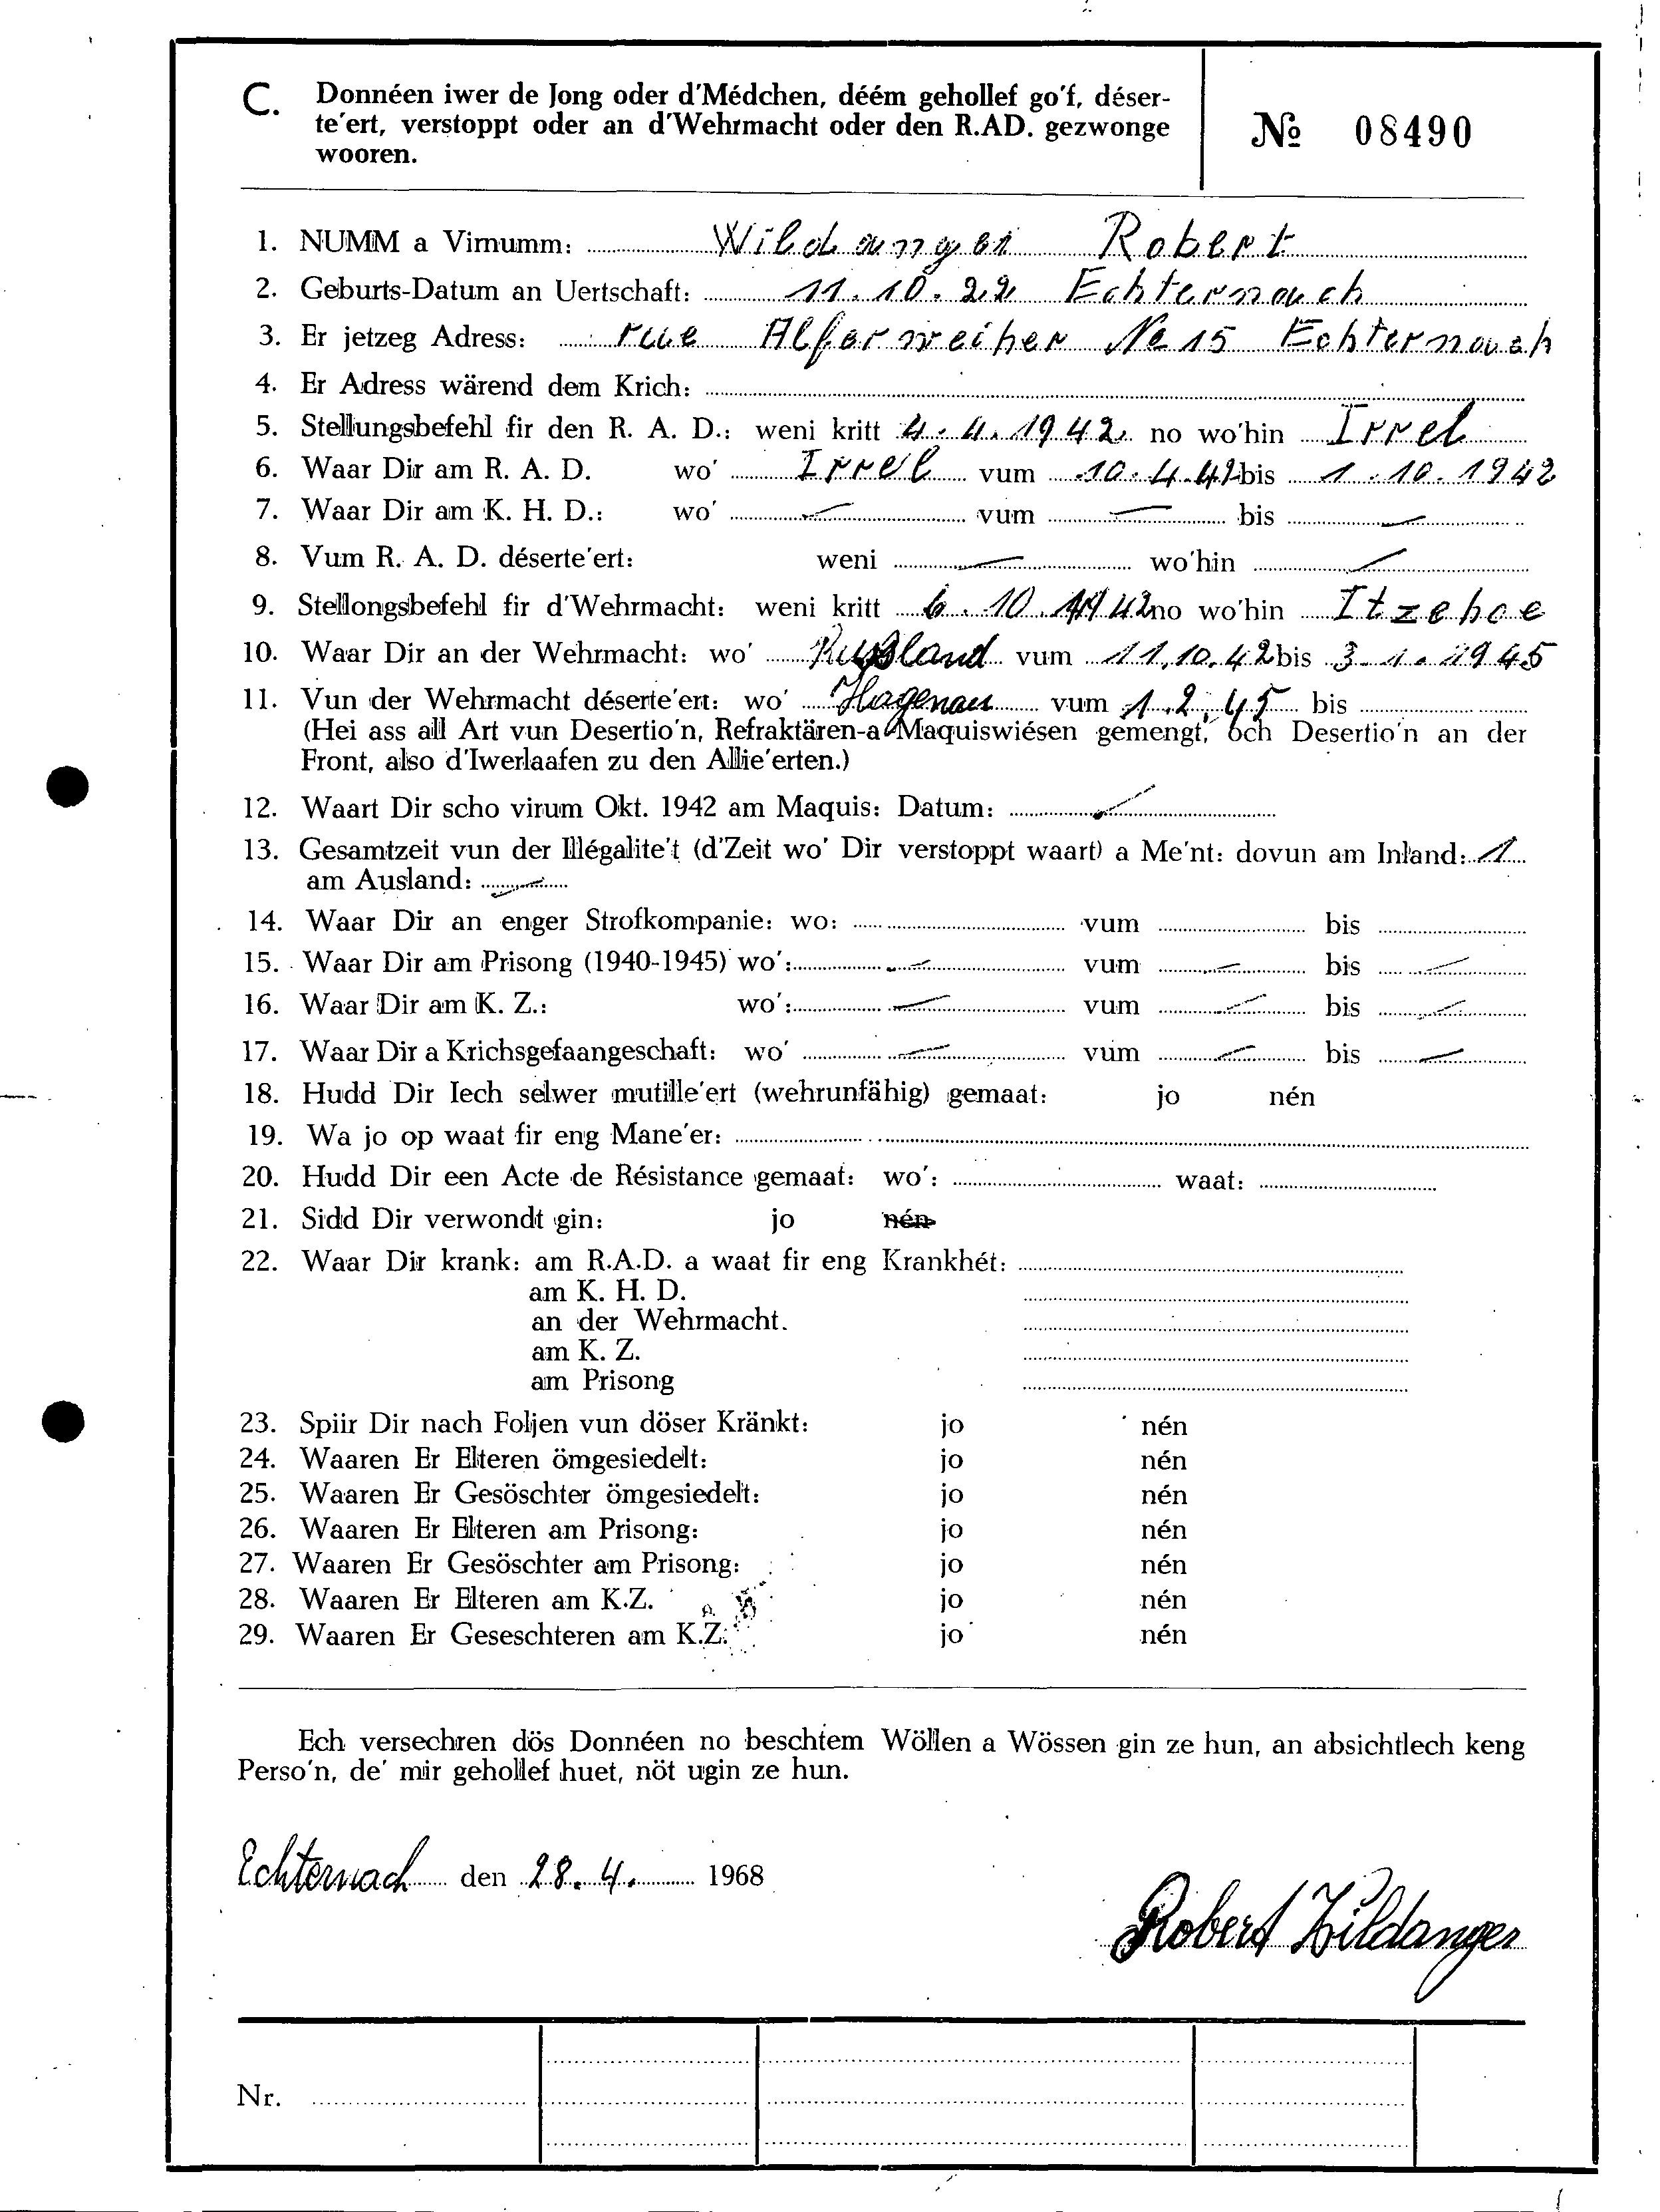 C. Donnéen iwer de Jong oder d'Médchen, déém gehollef go'f, déser-
te'ert, verstoppt oder an d'Wehrmacht oder den R.AD. gezwonge
wooren.
№ 08490
1. NUMM a Virnumm: Wildanger Robert
2. Geburts-Datum an Uertschaft: 11.10.22 Echternach
3. Er jetzeg Adress: rue Alferweiher No 15 Echternach
4. Er Adress wärend dem Krich:
5. Stellungsbefehl fir den R. A. D.: weni kritt 4.4.1942 no wo'hin Irrel
6. Waar Dir am R. A. D. wo' Irrel vum 10.4.42 bis 1.10.1942
7. Waar Dir am K. H. D.: wo' — vum — bis —
8. Vum R. A. D. déserte'ert: weni — wo'hin —
9. Stellongsbefehl fir d'Wehrmacht: weni kritt 6.10.1942 no wo'hin Itzehoe
10. Waar Dir an der Wehrmacht: wo' Rußland vum 11.10.42 bis 3.1.1945
11. Vun der Wehrmacht déserte'ert: wo' Hagenau vum 1.2.45 bis
(Hei ass all Art vun Desertio'n, Refraktären-a Maquiswiésen gemengt, och Desertio'n an der
Front, also d'Iwerlaafen zu den Allie'erten.)
12. Waart Dir scho virum Okt. 1942 am Maquis: Datum: —
13. Gesamtzeit vun der Illégalite't (d'Zeit wo' Dir verstoppt waart) a Me'nt: dovun am Inland: 1
am Ausland: —
14. Waar Dir an enger Strofkompanie: wo: vum bis
15. Waar Dir am Prisong (1940-1945) wo': — vum — bis —
16. Waar Dir am K. Z.: wo': — vum — bis —
17. Waar Dir a Krichsgefaangeschaft: wo' — vum — bis —
18. Hudd Dir Iech selwer mutille'ert (wehrunfähig) gemaat: jo nén
19. Wa jo op waat fir eng Mane'er:
20. Hudd Dir een Acte de Résistance gemaat: wo': waat:
21. Sidd Dir verwondt gin: jo nén
22. Waar Dir krank: am R.A.D. a waat fir eng Krankhét:
am K. H. D.
an der Wehrmacht.
am K. Z.
am Prisong
23. Spiir Dir nach Foljen vun döser Kränkt: jo nén
24. Waaren Er Elteren ömgesiedelt: jo nén
25. Waaren Er Gesöschter ömgesiedelt: jo nén
26. Waaren Er Elteren am Prisong: jo nén
27. Waaren Er Gesöschter am Prisong: jo nén
28. Waaren Er Elteren am K.Z. jo nén
29. Waaren Er Geseschteren am K.Z. jo nén
Ech versechren dös Donnéen no beschtem Wöllen a Wössen gin ze hun, an absichtlech keng
Perso'n, de' mir gehollef huet, nöt ugin ze hun.
Echternach den 28.4. 1968
Robert Wildanger
Nr.